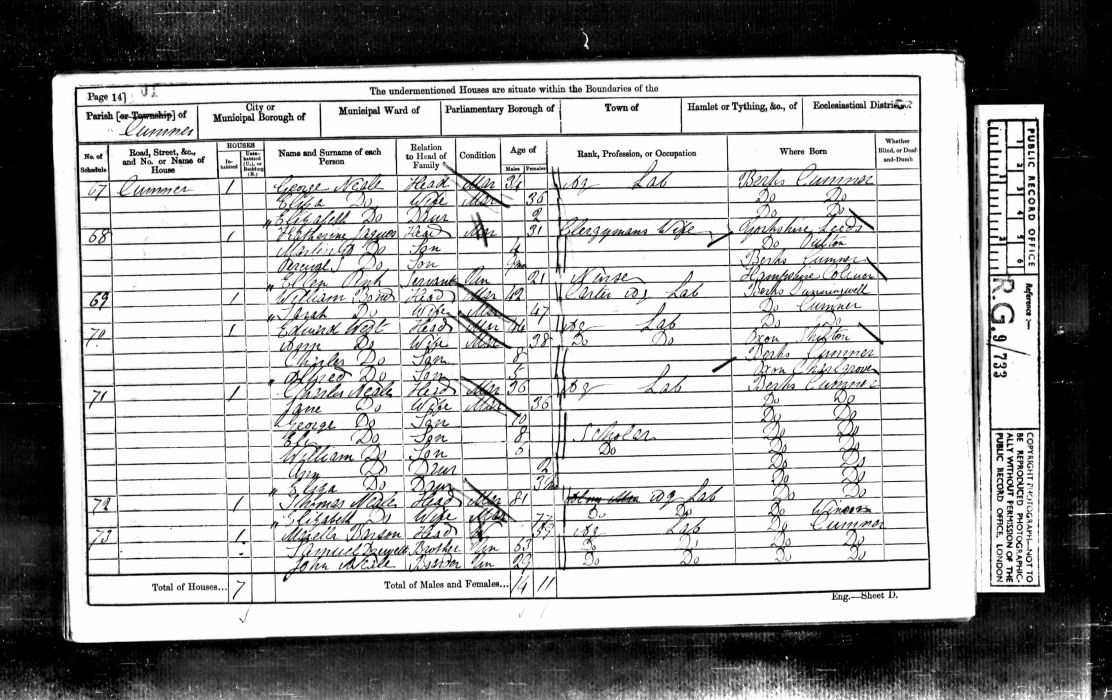 The undermentioned Houses are situate within the Boundaries of the
Page 14]
Parish [or Township] of Cumner
City or Municipal Borough of
Municipal Ward of
Parliamentary Borough of
Town of
Hamlet or Tything, &c., of
Ecclesiastical District of
No. of Schedule
Road, Street, &c., and No. or Name of House
HOUSES
In-habited
Unin-habited (U.), or Building (B.)
Name and Surname of each Person
Relation to Head of Family
Condition
Age of
Males
Females
Rank, Profession, or Occupation
Where Born
Whether Blind, or Deaf-and-Dumb
67 Cumner 1 George Neale Head Mar 34 Ag Lab Berks Cumner
Eliza Do Wife Mar 36 Do Do
Elizabeth Do Daur 2 Do Do
68 1 Katherine Jaques Head Mar 31 Clergymans Wife Yorkshire Leeds
Do Son 4 Do
Percival Do Son Berks Cumner
Ellen Servant Un 21 Nurse Hampshire
69 1 William Head Mar 42 Carter Ag Lab Berks
Sarah Do Wife Mar 47 Do Cumner
70 1 Edward West Head Mar Ag Lab Do Do
Ann Do Wife Mar 38 Do Do Oxon
Charles Do Son 8 Berks Cumner
Alfred Do Son 5 Oxon
71 1 Charles Neale Head Mar 36 Ag Lab Berks Cumner
Jane Do Wife Mar 36 Do Do
George Do Son 10 Do Do
Eli Do Son 8 Scholar Do Do
William Do Son 5 Do Do Do
Ann Do Daur 2 Do Do
Eliza Do Daur Do Do
72 1 Thomas Neale Head Mar 81 Ag Lab Do
Elizabeth Do Wife Mar 77 Do Do Do Cumner
73 1 Head 59 Ag Lab Do Do
Samuel Brother Un 63 Do Do Do Do
John Neale Boarder Un 29 Do Do Do Do
Total of Houses... 7
Total of Males and Females... 14 11
Eng.—Sheet D.
PUBLIC RECORD OFFICE
1 2 3 4 5 6
Reference :—
R.G. 9/733
COPYRIGHT PHOTOGRAPH—NOT TO BE REPRODUCED PHOTOGRAPHICALLY WITHOUT PERMISSION OF THE PUBLIC RECORD OFFICE, LONDON